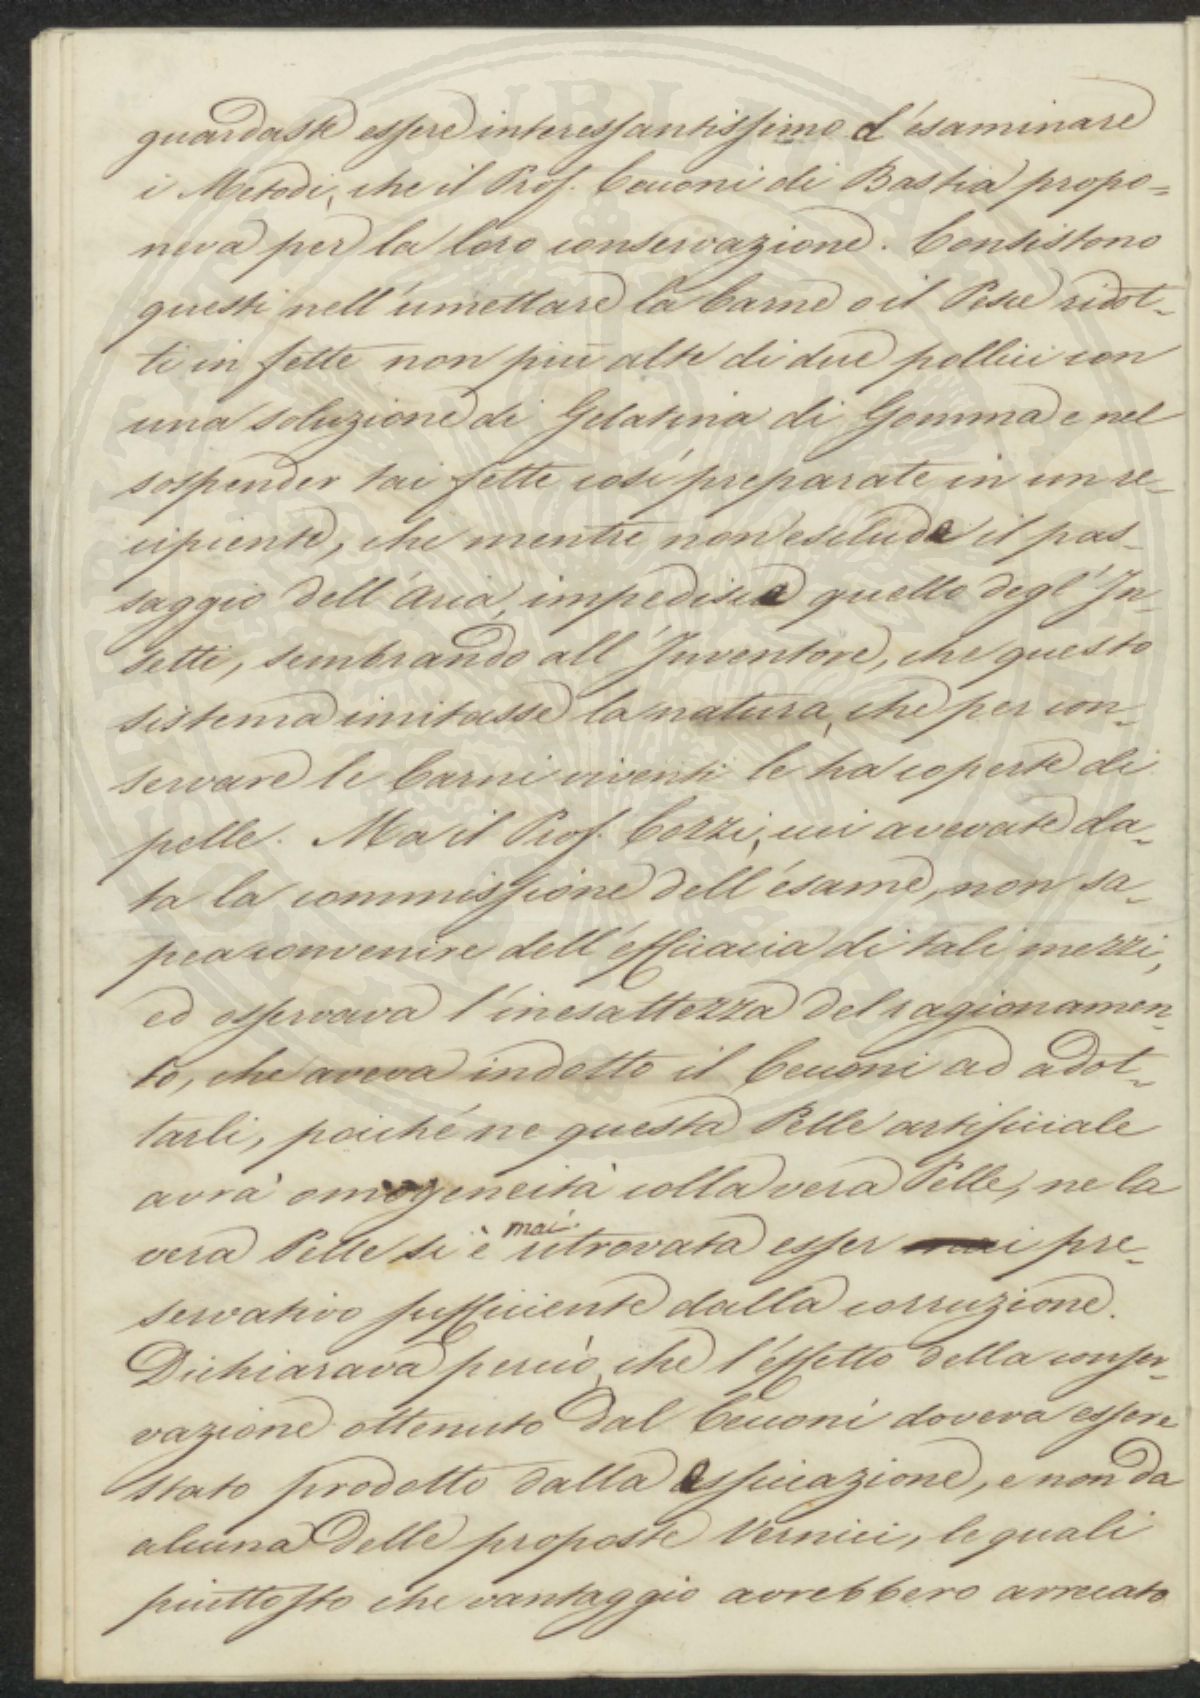 guardaste essere interessantissimo l'esaminare
i Metodi, che il Prof. Ceuoni di Bastia propo=
neva per la loro conservazione. Consistono
questi nell'umettare la Carne o il Pesce ridot=
ti in fette non più alte di due pollici con
una soluzione di Gelatina di Gomma e nel
sospender tai fette così preparate in un re=
cipiente, che mentre non escluda il pas=
saggio dell'Aria, impedisca quello degl'In=
setti, sembrando all'Inventore, che questo
sistema imitasse la natura, che per con=
servare le Carni viventi le ha coperte di
pelle. Ma il Prof. Cozzi, cui avevate da=
ta la commissione dell'esame, non sa=
pea convenire dell'efficacia di tali mezzi,
ed osservava l'inesattezza del ragionamen=
to, che aveva indotto il Ceuoni ad adot=
tarli, poiché ne questa Pelle artificiale
avrà omogeneità colla vera Pelle, ne la
vera Pelle si è mai ritrovata esser pre=
servativo sufficiente dalla corruzione.
Dichiarava perciò, che l'effetto della conser=
vazione ottenuto dal Ceuoni doveva essere
stato prodotto dalla essiccazione, e non da
alcuna delle proposte Vernici, le quali
piuttosto che vantaggio avrebbero arrecato